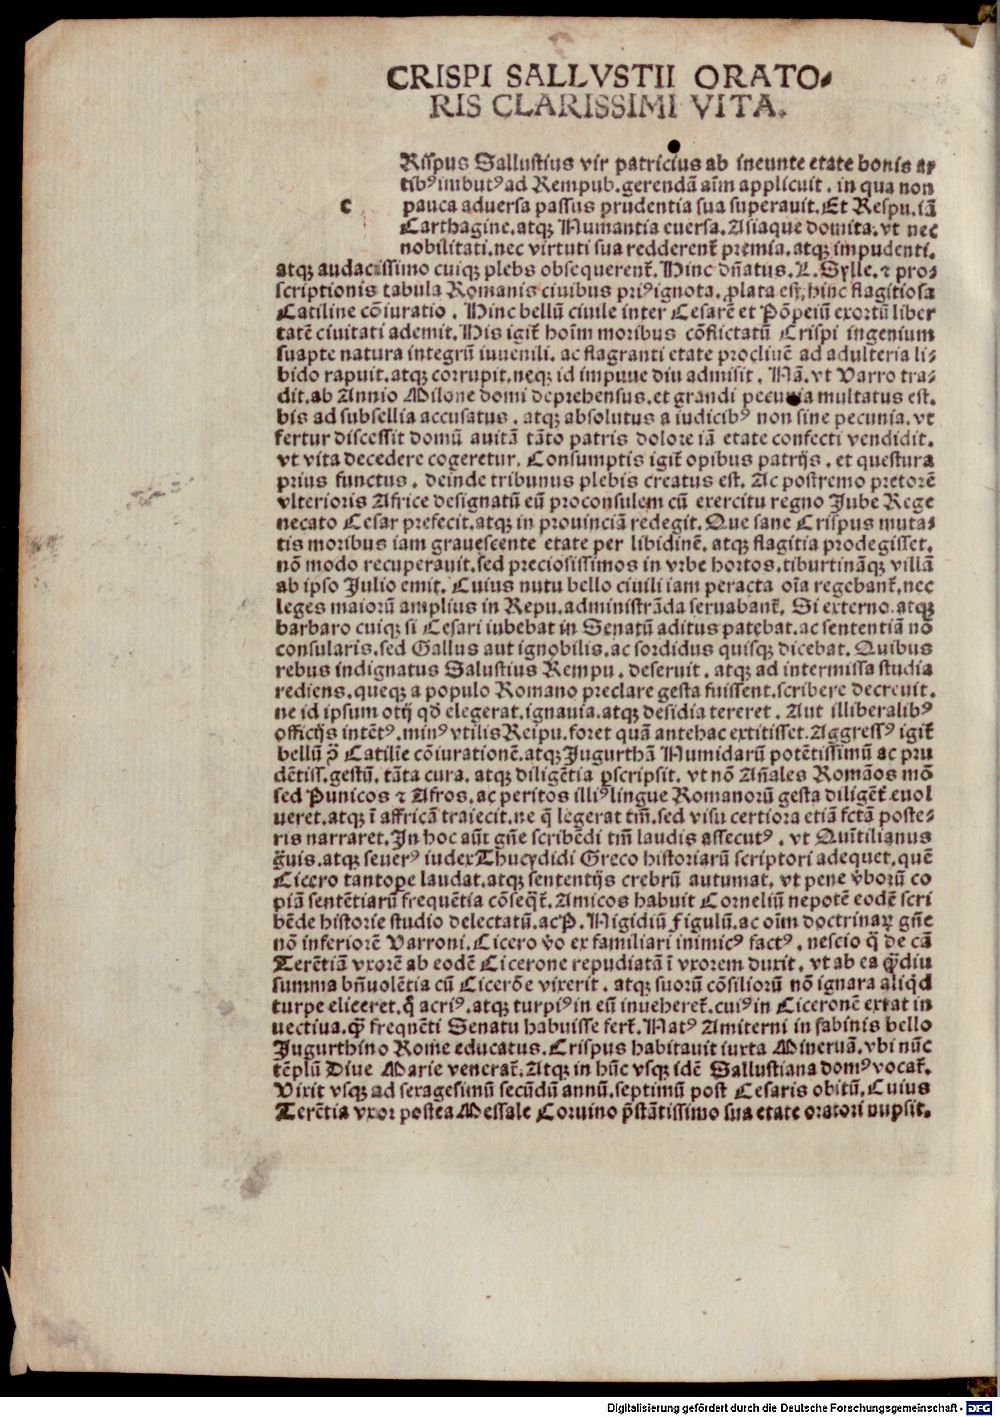 CRISPI SALLVSTII ORATO⸗
RIS CLARISSIMI VITA.
c
Riſpus Salluſtius vir patricius ab ineunte etate bonis ar
tibꝰ imbutꝰ ad Rempub. gerendā aim̄ applicuit . in qua non
pauca aduerſa paſſus prudentia ſua ſuperauit. Et Reſpu. iā
Carthagine. atqꝫ Numantia euerſa. Aſiaque domita. vt nec
nobilitati. nec virtuti ſua redderent̄ premia. atqꝫ impudenti.
atqꝫ audaciſſimo cuiqꝫ plebs obſequerent̄. Hinc dn̄atus. L. Sylle. ⁊ pro⸗
ſcriptionis tabula Romanis ciuibus priꝰ ignota. ꝓlata eſt, hinc flagitioſa
Catiline cōiuratio . Hinc bellū ciuile inter Ceſarē et Pōpeiū exortū liber
tatē ciuitati ademit. His igit̄ hoīm moribus cōflictatū Criſpi ingenium
ſuapte natura integrū iuuenili. ac flagranti etate procliuē ad adulteria li⸗
bido rapuit. atqꝫ corrupit. neqꝫ id impune diu admiſit . Nā. vt Varro tra⸗
dit. ab Annio Milone domi deprehenſus. et grandi pecunia multatus eſt.
bis ad ſubſellia accuſatus . atqꝫ abſolutus a iudicibꝰ non ſine pecunia. vt
fertur diſceſſit domū auitā tāto patris dolore iā etate confecti vendidit.
vt vita decedere cogeretur. Conſumptis igit̄ opibus patrijs . et queſtura
prius functus . deinde tribunus plebis creatus eſt. Ac poſtremo pretorē
vlterioris Africe deſignatū eū proconſulem cū exercitu regno Jube Rege
necato Ceſar prefecit. atqꝫ in prouinciā redegit. Que ſane Criſpus muta⸗
tis moribus iam graueſcente etate per libidinē. atqꝫ flagitia prodegiſſet.
nō modo recuperauit. ſed precioſiſſimos in vrbe hortos. tiburtināqꝫ villā
ab ipſo Julio emit. Cuius nutu bello ciuili iam peracta oīa regebant̄. nec
leges maiorū amplius in Repu. adminiſtrāda ſeruabant̄. Si externo. atqꝫ
barbaro cuiqꝫ ſi Ceſari iubebat in Senatū aditus patebat. ac ſententiā nō
conſularis. ſed Gallus aut ignobilis. ac ſordidus quiſqꝫ dicebat. Quibus
rebus indignatus Saluſtius Rempu . deſeruit . atqꝫ ad intermiſſa ſtudia
rediens. queqꝫ a populo Romano preclare geſta fuiſſent. ſcribere decreuit.
ne id ipſum otij qd̄ elegerat. ignauia. atqꝫ deſidia tereret . Aut illiberalibꝰ
officijs intētꝰ. minꝰ vtilis Reipu. foret quā antehac extitiſſet. Aggreſſꝰ igit̄
bellū p̄ Catilīe cōiurationē. atqꝫ Jugurthā Numidarū potētiſſimū ac pru
dētiſſ. geſtū. tāta cura. atqꝫ diligētia ꝑſcripſit. vt nō An̄ales Romāos mō
ſed Punicos ⁊ Afros. ac peritos illiꝰ lingue Romanorū geſta diligēt̄ euol
ueret. atqꝫ ī affricā traiecit. ne q̄ legerat tm̄. ſed viſu certiora etiā fctā poſte⸗
ris narraret. In hoc aūt gn̄e ſcribēdi tm̄ laudis aſſecutꝰ . vt Quītilianus
g̃uis. atqꝫ ſeuerꝰ iudex Thucydidi Greco hiſtoriarū ſcriptori adequet. quē
Cicero tantope laudat. atqꝫ ſententijs crebrū autumat. vt pene v̄borū co
piā ſentētiarū frequētia cōſeq̄t̄. Amicos habuit Corneliū nepotē eodē ſcri
bēde hiſtorie ſtudio delectatū. ac P. Nigidiū Figulū. ac oīm doctrinaꝝ gn̄e
nō inferiorē Varroni. Cicero v̄o ex familiari inimicꝰ factꝰ . neſcio q̄ de cā
Terētiā vxorē ab eodē Cicerone repudiatā ī vxorem duxit . vt ab ea q̄ꝫdiu
ſumma bn̄uolētia cū Cicerōe vixerit . atqꝫ ſuorū cōſiliorū nō ignara aliq̇d
turpe eliceret. q̇ acriꝰ. atqꝫ turpiꝰ in eū inueheret̄. cuiꝰ in Ciceronē extat in
uectiua. q̄ꝫ frequēti Senatu habuiſſe fert̄. Natꝰ Amiterni in ſabinis bello
Jugurthino Rome educatus. Criſpus habitauit iuxta Mineruā. vbi nūc
tēplū Diue Marie venerat̄. Atqꝫ in hūc vſqꝫ idē Salluſtiana domꝰ vocat̄.
Vixit vſqꝫ ad ſexageſimū ſecūdū annū. ſeptimū poſt Ceſaris obitū. Cuius
Terētia vxor poſtea Meſſale Coruino p̄ſtātiſſimo ſua etate oratori nupſit.
Digitalisierung gefördert durch die Deutsche Forschungsgemeinschaft - DFG